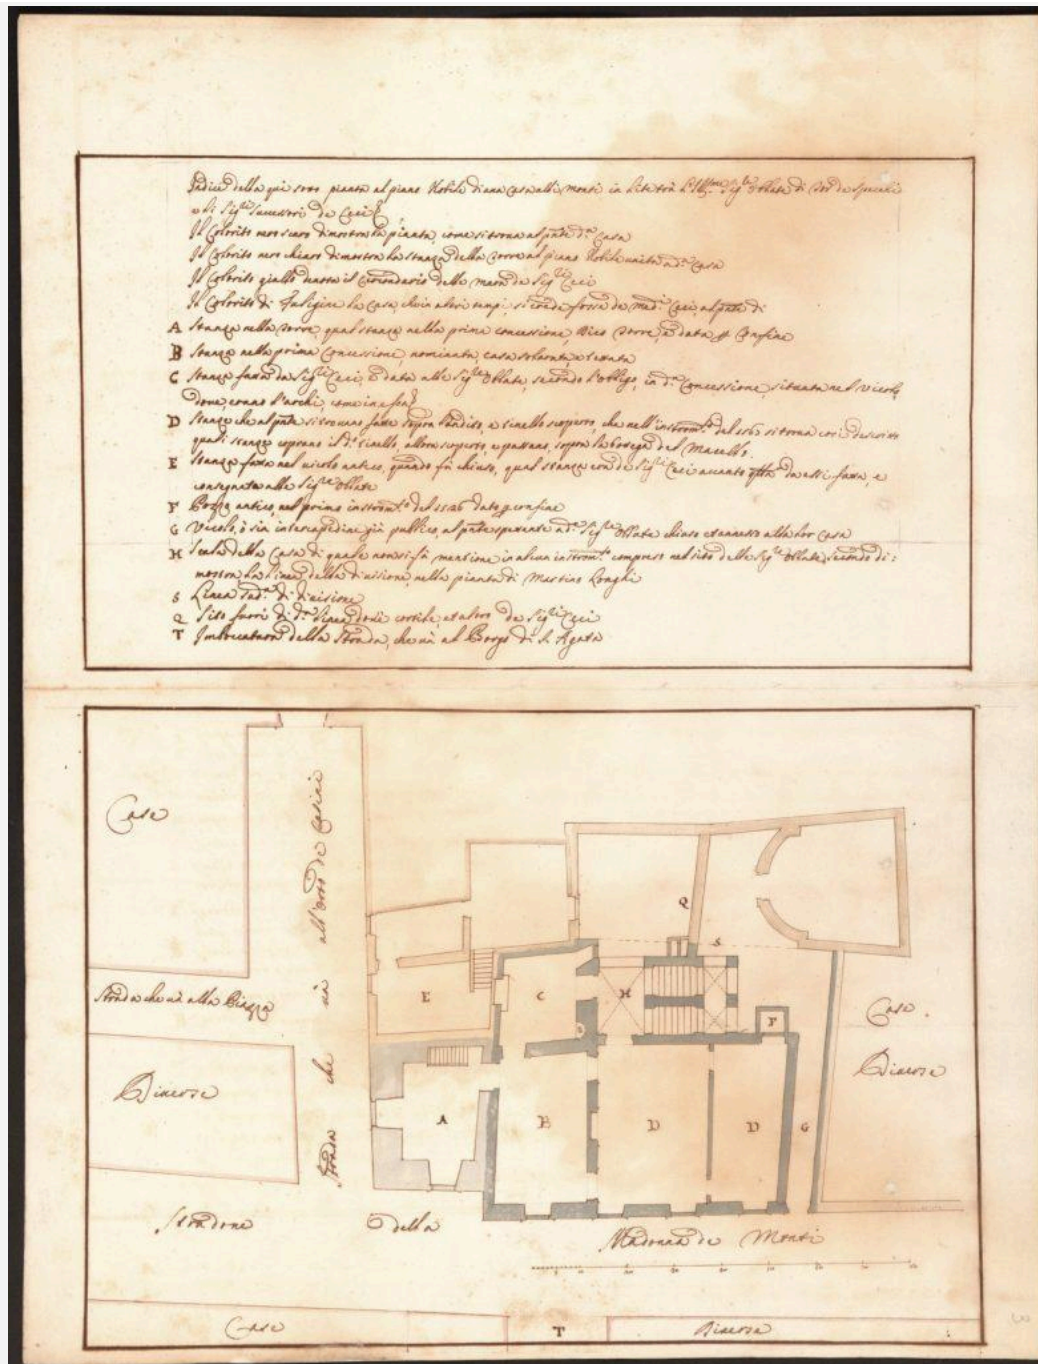 Indice della qui sopra pianta al piano Nobile di una Casa alli monti in lite trà l'Ill.me Sig.re Oblate di Tor de Specchi
e li Sig.ri Successori de Ceci
Il Colorito nero scuro dimostra la pianta, come si trova al p̃nte d.a Casa
Il Colorito nero chiaro dimostra la stanza della Torre al piano Nobile unita a d.a Casa
Il Colorito giallo denota il Circondario delle mura de Sig.ri Ceci
Il Colorito di Fuligine la Casa, che in altri tempi, si crede fosse de med.i Ceci, al p̃nte di
A Stanza nella Torre, qual stanza nella prima concessione, dico Torre, è data p Confine
B Stanza nella prima Concessione, nominata, casa solarata, e
C Stanza fatta da Sig.ri Ceci, e data alle Sig.re Oblate, secondo l'obligo, in d.a Concessione, situata nel vicolo
dove, erano l'archi, come in essa
D Stanze che al p̃nte si trovano fatte sopra l'andito, e tinello scoperto, che nell'instrom.to del 1563 si trova così descritto
quali stanze coprono il d.o tinello, allora scoperto, e passano, sopra la bottega del Macello.
E Stanza fatta nel vicolo antico, quando fù chiuso, qual stanza con de Sig.ri Ceci accanto da essi fatta, e
consegnata alle Sig.re Oblate
F Pozzo antico, nel primo instrom.to del 1526 dato p confine
G Vicolo, ò sia intercapedine già publico, al p̃nte spettante a d.e Sig.re Oblate chiuso et annesso alla lor casa
H Scala della Casa di quale non si fà mentione in alcun instrom.to compreso nel sito delle Sig.re Oblate, secondo di:
mostra la linea della divisione, nella pianta di Martino Longhi
S Linea sud.a di divisione
Q Sito fuori di d.a linea dov'è cortile, et altro de Sig.ri Ceci
T Imboccatura della Strada, che và al Borgo di S. Agata
Case
Strada che và all'orto de
Strada che và alla Piazza
Diverse
Q
S
E
C
H
F
Case
Diverse
A
B
D
D
G
Stradone della Madonna de Monti
Case
T
Diverse